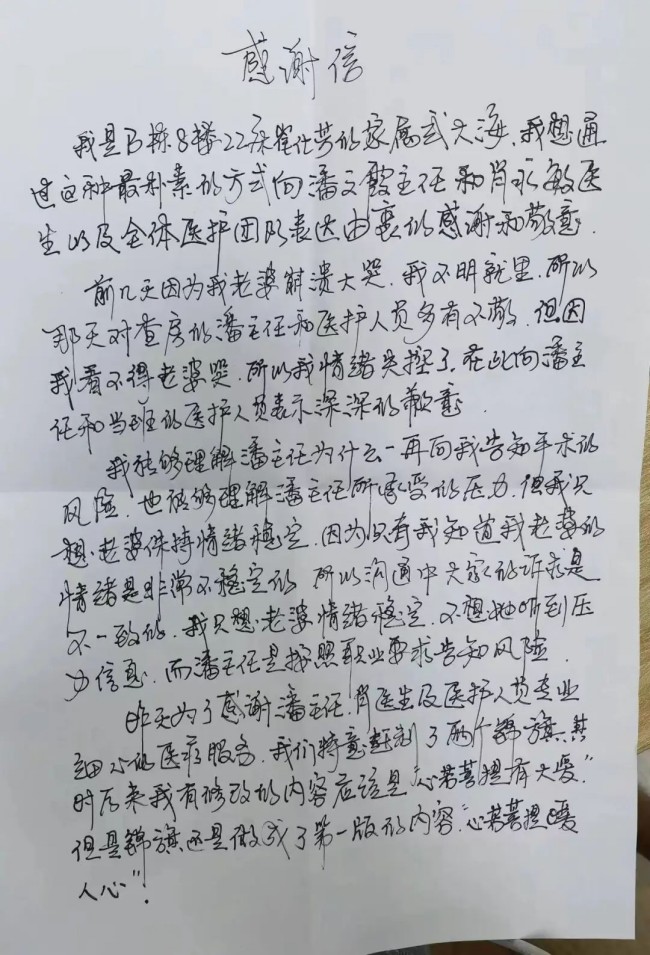 感谢信
我是B栋8楼22床崔仕芳的家属武大海，我想通
过这种最朴素的方式向潘文霞主任和肖永敏医
生以及全体医护团队表达由衷的感谢和敬意.
前几天因为我老婆崩溃大哭，我不明就里.所以
那天对查房的潘主任和医护人员多有不敬，但因
我看不得老婆哭.所以我情绪失控了，在此向潘主
任和当班的医护人员表示深深的歉意.
我能够理解潘主任为什么一再向我告知手术的
风险，也能够理解潘主任所承受的压力.但我只
想老婆保持情绪稳定，因为只有我知道我老婆的
情绪是非常不稳定的 所以沟通中大家的诉求是
不一致的.我只想老婆情绪稳定，不想她听到压
力信息，而潘主任是按照职业要求告知风险.
昨天为了感谢潘主任，肖医生及医护人员专业
细心的医疗服务，我们特意赶制了两个锦旗，其
时后来我有修改的内容应该是“心若菩提有大爱”
但是锦旗还是做成了第一版的内容“心若菩提暖
人心”！